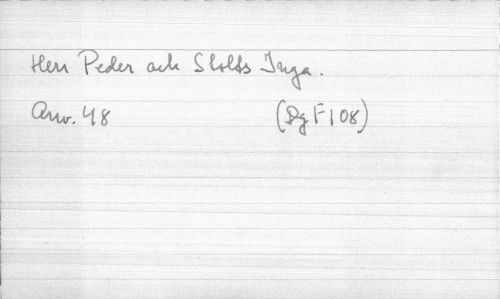 Herr Peder och Slotts Inga.
Arw. 48 (Dg F 108)